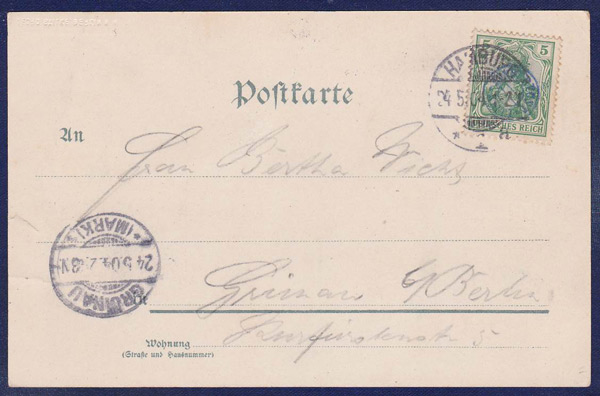 5
HAMBURG
24.5.04
REICH
* 1 a
Postkarte
An
Frau Bertha Wichs
Grünau b/Berlin
Kurfürstenstr 5
* (MARK)
24.5.04.2-3N.
GRÜNAU
Wohnung
(Straße und Hausnummer)